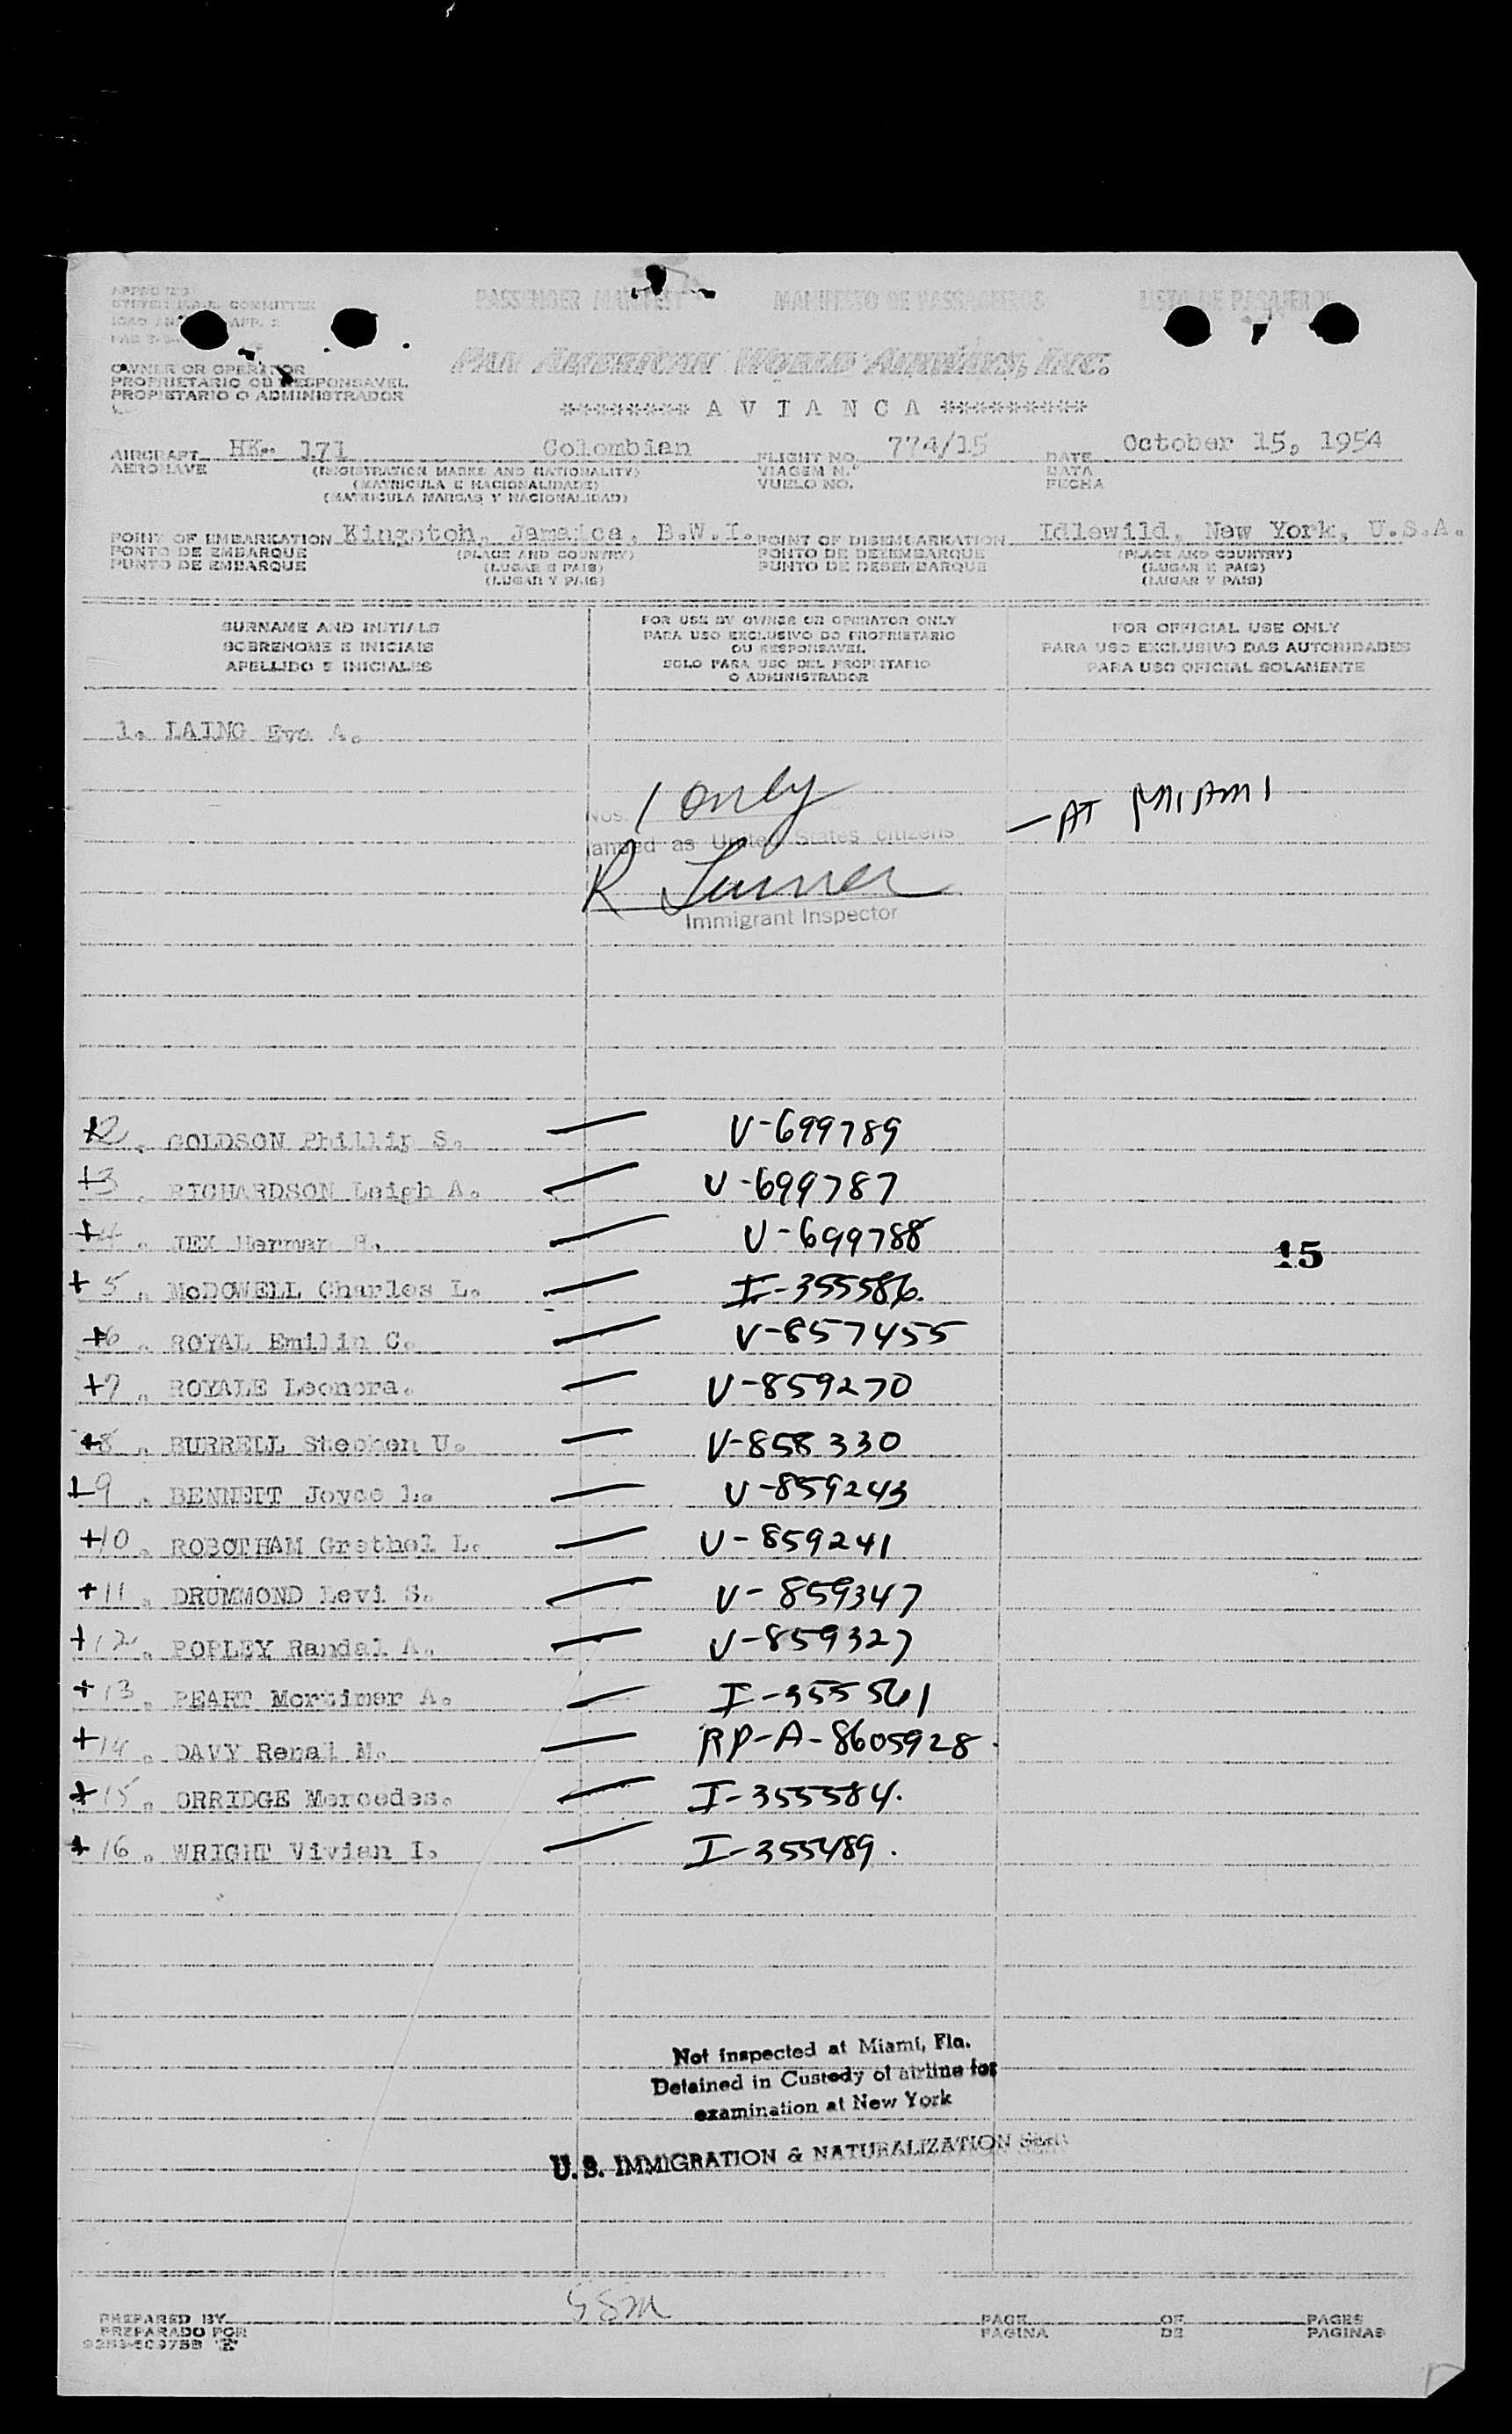 APPROVED
SYSTEM COMMITTEE
PASSENGER MANIFEST MANIFESTO DE PASSAGEIROS LISTA DE PASAJEROS
OWNER OR OPERATOR
PROPRIETARIO OU RESPONSAVEL
PROPIETARIO O ADMINISTRADOR
PAN AMERICAN WORLD AIRWAYS, INC.
******** A V I A N C A *********
AIRCRAFT HK- 171 Colombian FLIGHT NO. 774/15 DATE October 15, 1954
AERONAVE (REGISTRATION MARKS AND NATIONALITY) VIAGEM N.º DATA
(MATRICULA E NACIONALIDADE) VUELO NO. FECHA
(MATRICULA MARCAS Y NACIONALIDAD)
POINT OF EMBARKATION Kingston, Jamaica, B.W.I. POINT OF DISEMBARKATION Idlewild, New York, U.S.A.
PONTO DE EMBARQUE (PLACE AND COUNTRY) PONTO DE DESEMBARQUE (PLACE AND COUNTRY)
PUNTO DE EMBARQUE (LUGAR E PAIS) PUNTO DE DESEMBARQUE (LUGAR E PAIS)
(LUGAR Y PAIS) (LUGAR Y PAIS)
SURNAME AND INITIALS FOR USE BY OWNER OR OPERATOR ONLY FOR OFFICIAL USE ONLY
SOBRENOME E INICIAIS PARA USO EXCLUSIVO DO PROPRIETARIO PARA USO EXCLUSIVO DAS AUTORIDADES
OU RESPONSAVEL
APELLIDO E INICIALES SOLO PARA USO DEL PROPIETARIO PARA USO OFICIAL SOLAMENTE
O ADMINISTRADOR
1. LAING Eva A.
Nos. 1 only — AT MIAMI
landed as United States citizens
R Turner
Immigrant Inspector
+2. GOLDSON Phillip S. — V-699789
+3. RICHARDSON Leigh A. — V-699787
+4. JEX Herman H. — V-699788
15
+5. McDOWELL Charles L. — I-355586.
+6. ROYAL Emilin C. — V-857455
+7. ROYALE Leonora. — V-859270
+8. BURRELL Stephen U. — V-858330
+9. BENNETT Joyce L. — V-859243
+10. ROBOTHAM Grethel L. — V-859241
+11. DRUMMOND Levi S. — V-859347
+12. POPLEY Randal A. — V-859327
+13. PEART Mortimer A. — I-355561
+14. DAVY Renal M. — RP-A-8605928.
+15. ORRIDGE Mercedes. — I-355584.
+16. WRIGHT Vivian I. — I-355489.
Not inspected at Miami, Fla.
Detained in Custody of airline for
examination at New York
U.S. IMMIGRATION & NATURALIZATION
PREPARED BY PAGE OF PAGES
PREPARADO POR PAGINA DE PAGINAS